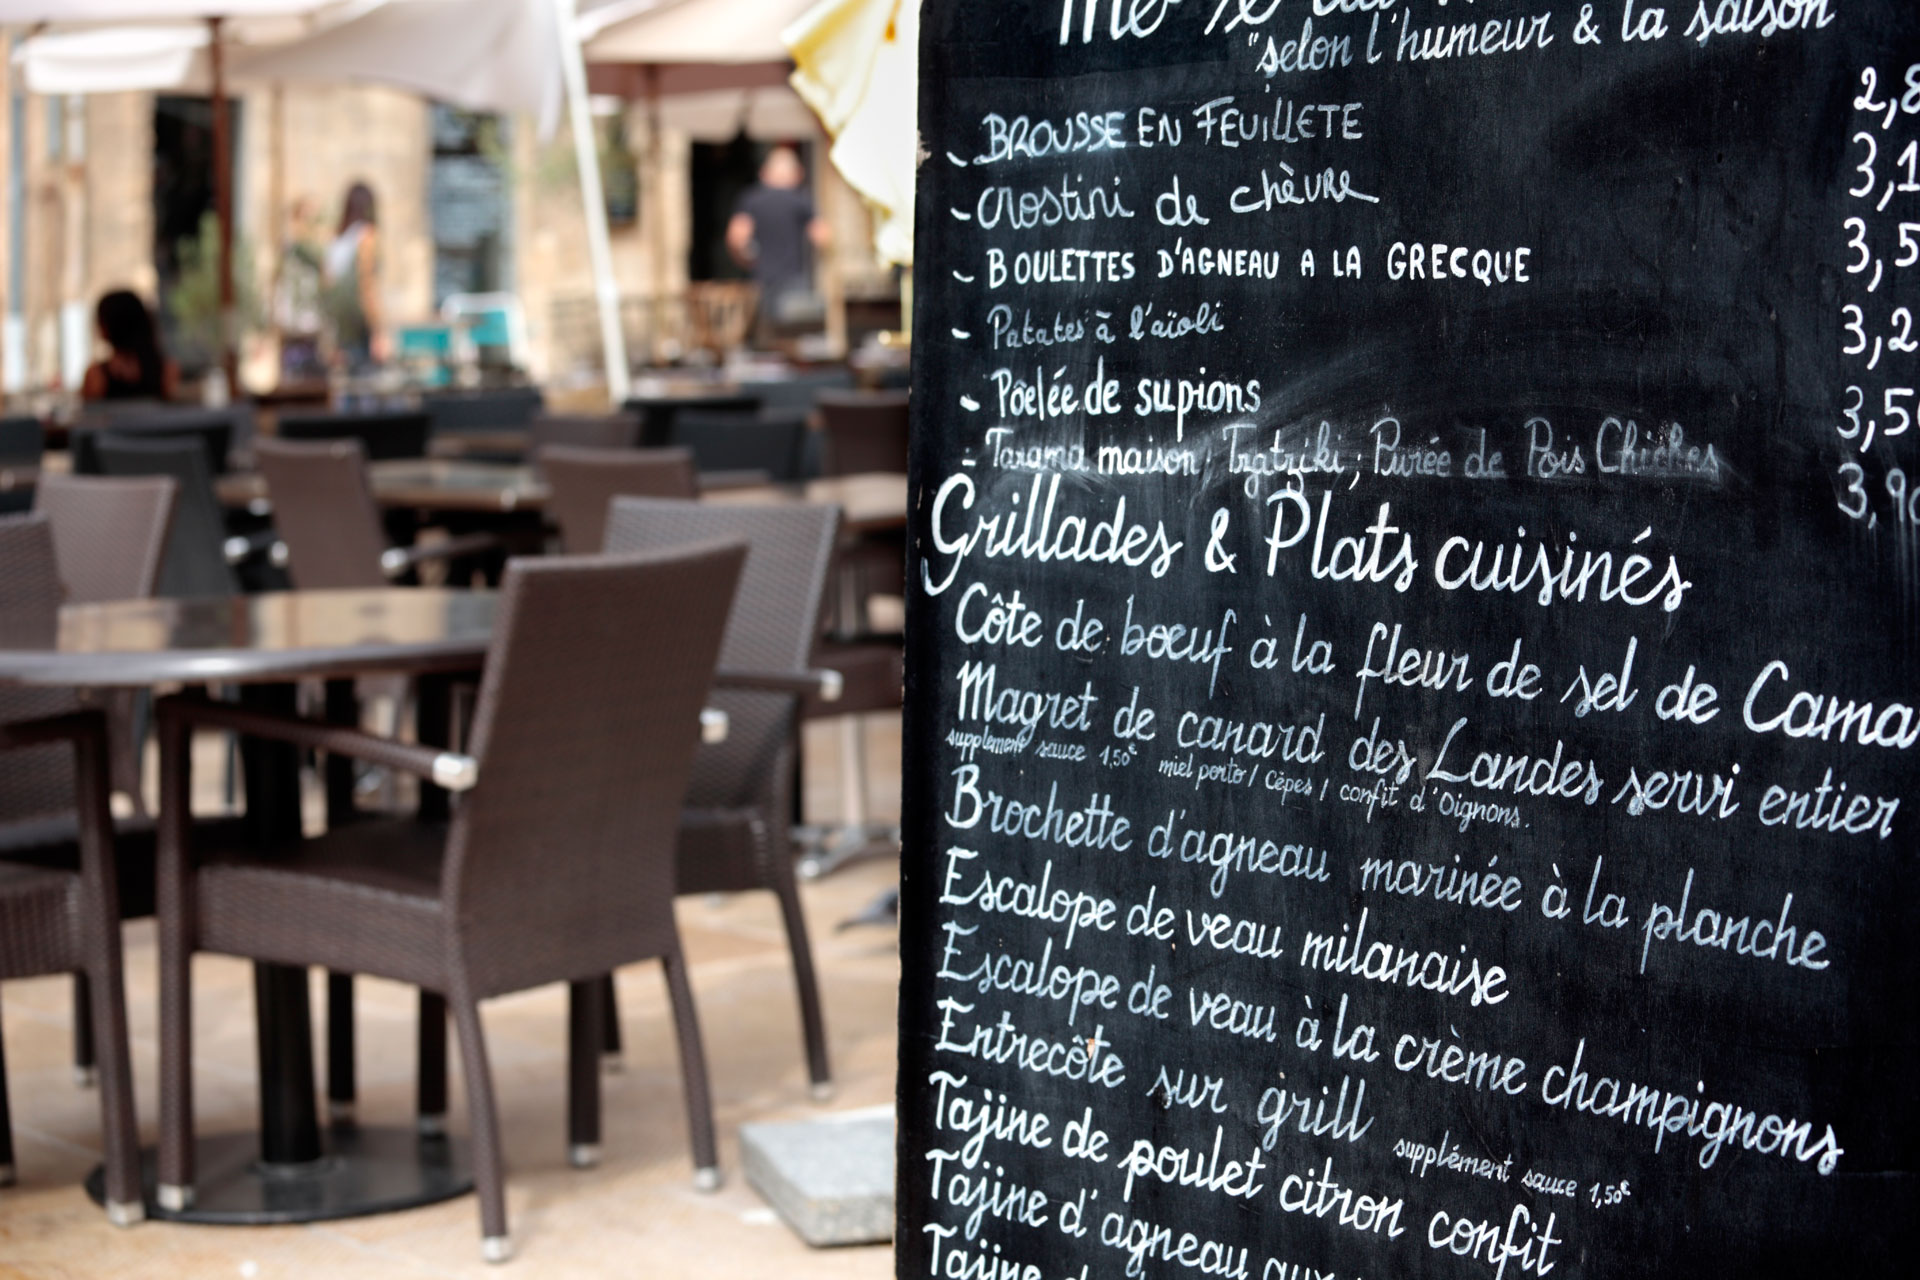 "selon l'humeur & la saison
- BROUSSE EN FEUILLETE 2,8
- Crostini de chèvre 3,1
- BOULETTES D'AGNEAU A LA GRECQUE 3,5
- Patates à l'aïoli 3,2
- Pôelée de supions 3,5
- Tarama maison; Tzatziki; Purée de Pois Chiches 3,90
Grillades & Plats cuisinés
Côte de boeuf à la fleur de sel de Cama
Magret de canard des Landes servi entier
supplement sauce 1,50€ miel porto / Cèpes / confit d'Oignons.
Brochette d'agneau marinée à la planche
Escalope de veau milanaise
Escalope de veau à la crème champignons
Entrecôte sur grill supplément sauce 1,50€
Tajine de poulet citron confit
Tajine d'agneau aux
Tajine